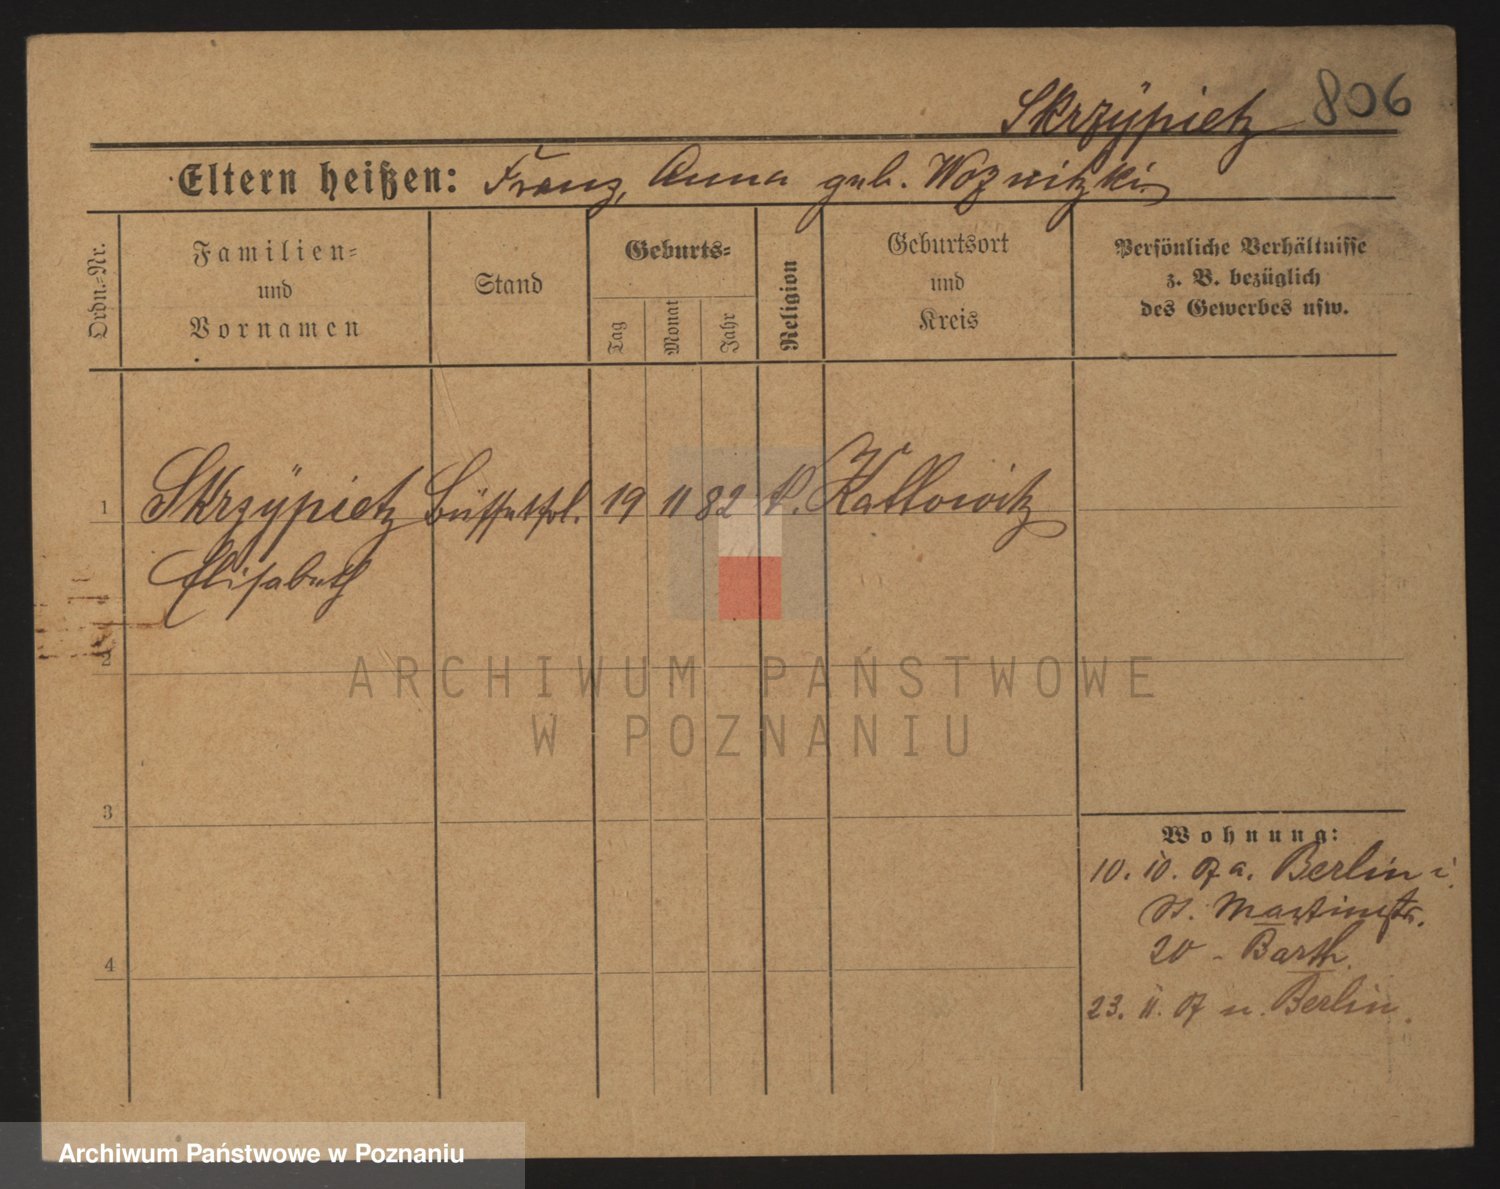 Skrzÿpietz 806
Eltern heißen: Franz, Anna geb. Woznitzki
Ordn.=Nr.
Familien=
und
Vornamen
Stand
Geburts=
Tag
Monat
Jahr
Religion
Geburtsort
und
Kreis
Persönliche Verhältnisse
z. B. bezüglich
des Gewerbes usw.
1 Skrzÿpietz Büffetfrl. 19 11 82 k. Kattowitz
Elisabeth
2
ARCHIWUM PAŃSTWOWE
W POZNANIU
3
4
Wohnung:
10. 10. 07 a. Berlin i.
St. Martinstr.
20 - Barth.
23. 11. 07 n. Berlin.
Archiwum Państwowe w Poznaniu